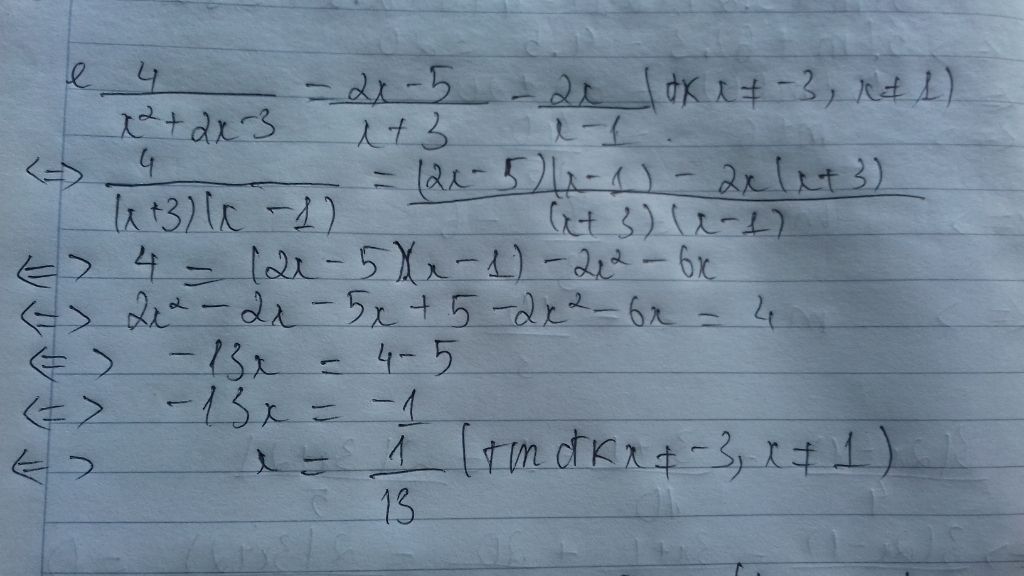 e 4/(x²+2x-3) = (2x-5)/(x+3) - 2x/(x-1) (đk x ≠ -3, x ≠ 1)
<=> 4/((x+3)(x-1)) = ((2x-5)(x-1) - 2x(x+3))/((x+3)(x-1))
<=> 4 = (2x-5)(x-1) - 2x² - 6x
<=> 2x² - 2x - 5x + 5 - 2x² - 6x = 4
<=> -13x = 4-5
<=> -13x = -1
<=> x = 1/13 (tmđk x ≠ -3, x ≠ 1)